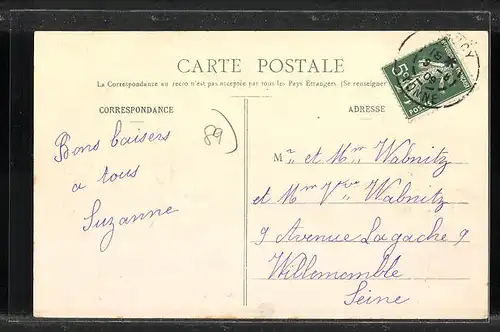 CARTE POSTALE
La Correspondance au recto n'est pas acceptée par tous les Pays Étrangers. (Se renseigner
CORRESPONDANCE
ADRESSE
89
Bons baisers
a tous
Suzanne
Mr et Mme Wabnitz
et Mme Vve Wabnitz
9 Avenue Lagache 9
Willemomble
Seine
5c
YONNE